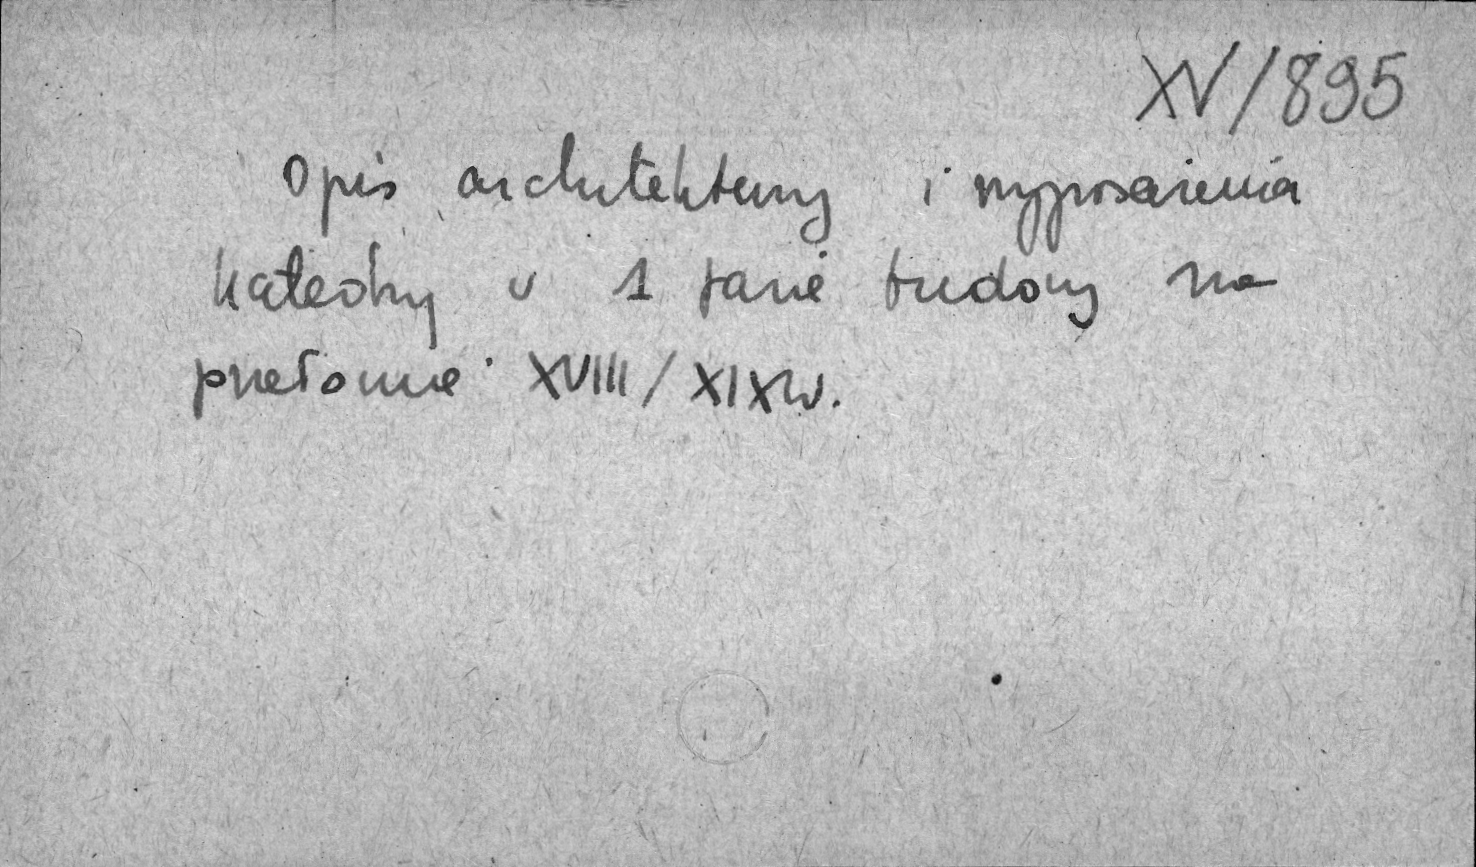 XV/895
Opis architektury i wyposażenia
katedry w 1 fazie budowy na
przełomie XVIII/XIX w.